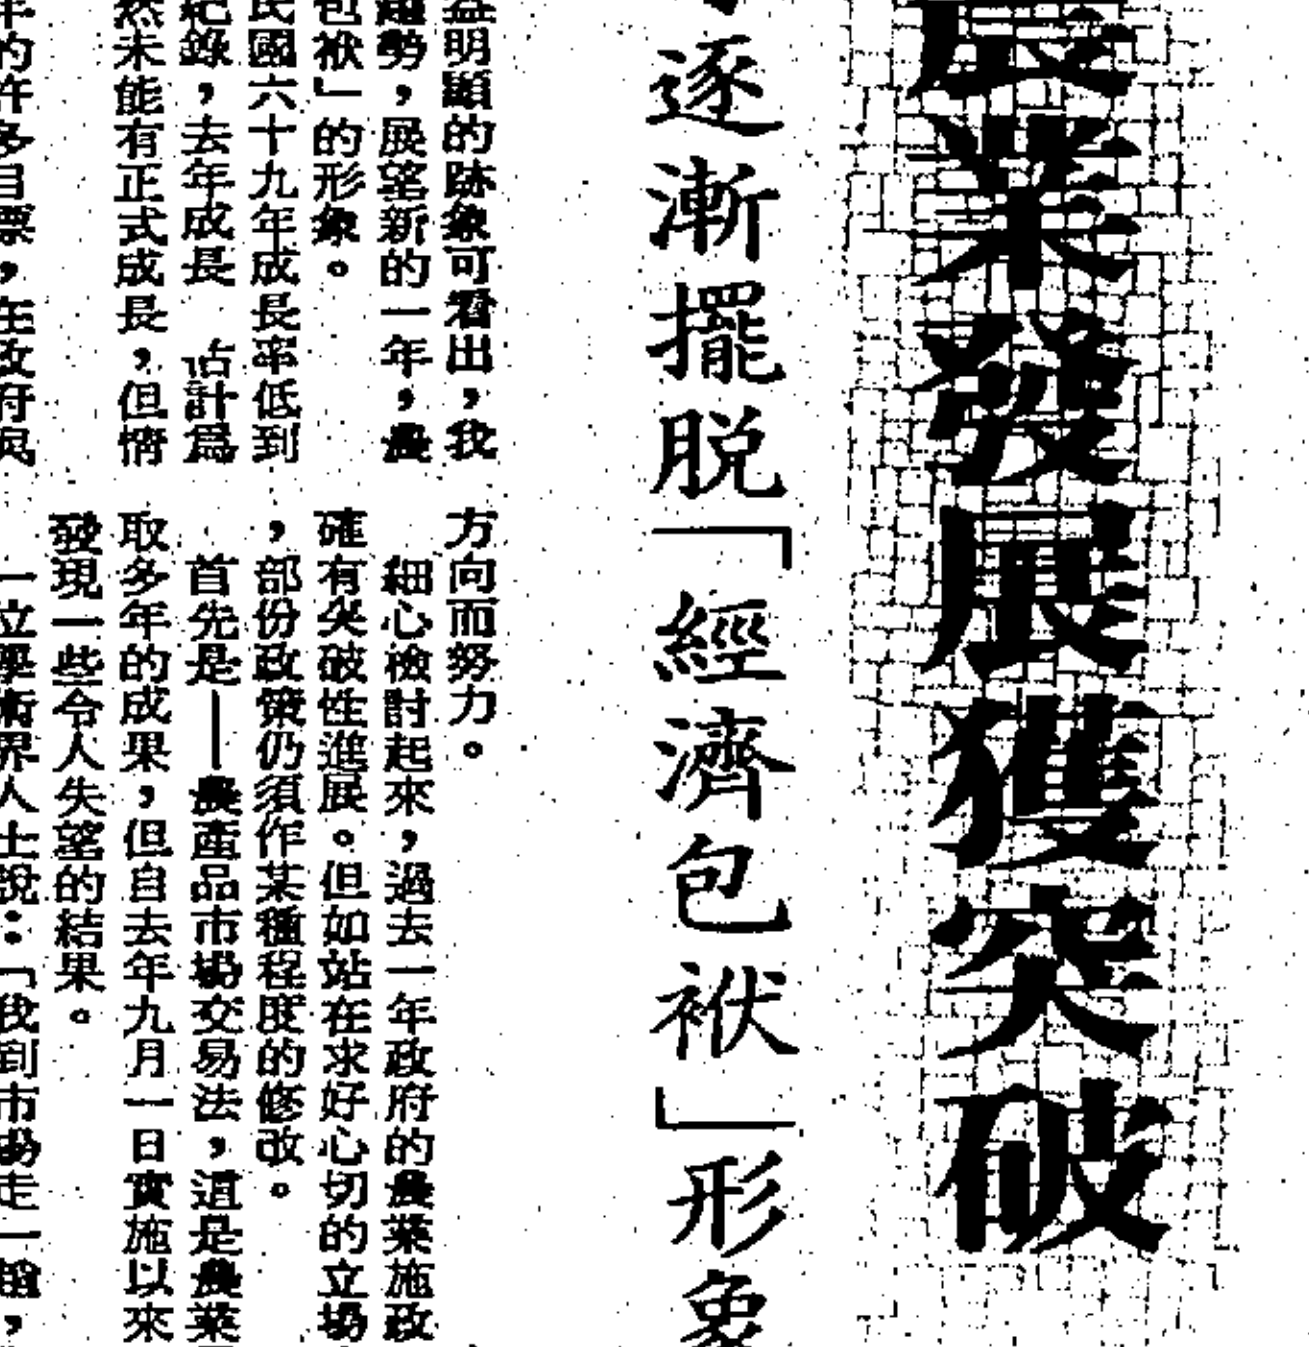 業發展獲突破
逐漸擺脫「經濟包袱」形象
益明顯的跡象可看出,我
趨勢,展望新的一年,農
包袱」的形象。
民國六十九年成長率低到
紀錄,去年成長 估計爲
然未能有正式成長,但情
年的許多目標,在政府與
方向而努力。
細心檢討起來,過去一年政府的農業施政
確有突破性進展。但如站在求好心切的立場
,部份政策仍須作某種程度的修改。
首先是——農產品市場交易法,這是農業
取多年的成果,但自去年九月一日實施以來
發現一些令人失望的結果。
一位學術界人士說:「我到市場走一趟,